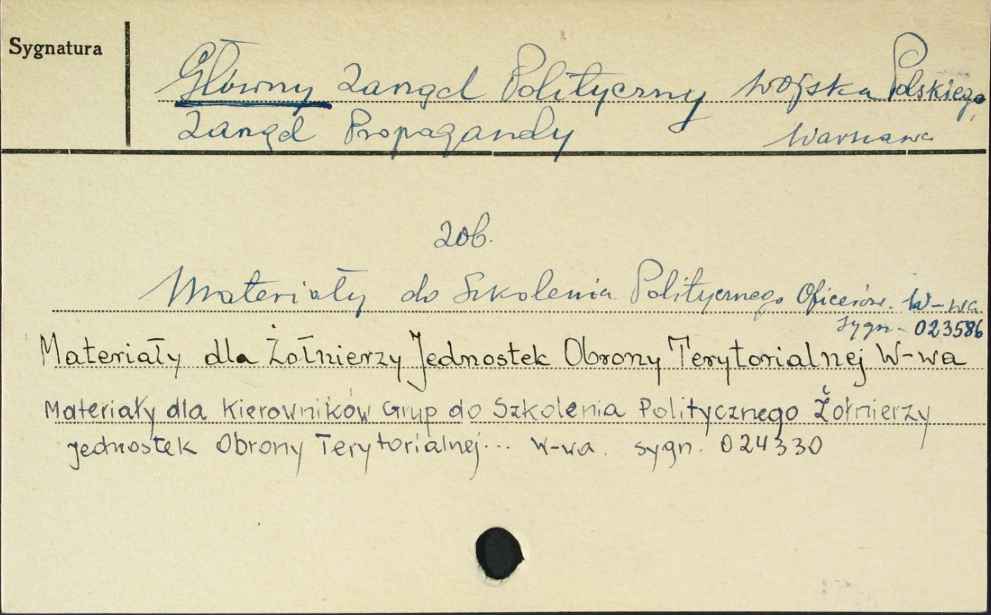 Sygnatura
Główny Zarząd Polityczny Wojska Polskiego,
Zarząd Propagandy Warszawa
zob.
Materiały do Szkolenia Politycznego Oficerów. W-wa
sygn. 023586
Materiały dla Żołnierzy Jednostek Obrony Terytorialnej W-wa
Materiały dla Kierowników Grup do Szkolenia Politycznego Żołnierzy
Jednostek Obrony Terytorialnej... W-wa. sygn. 024330